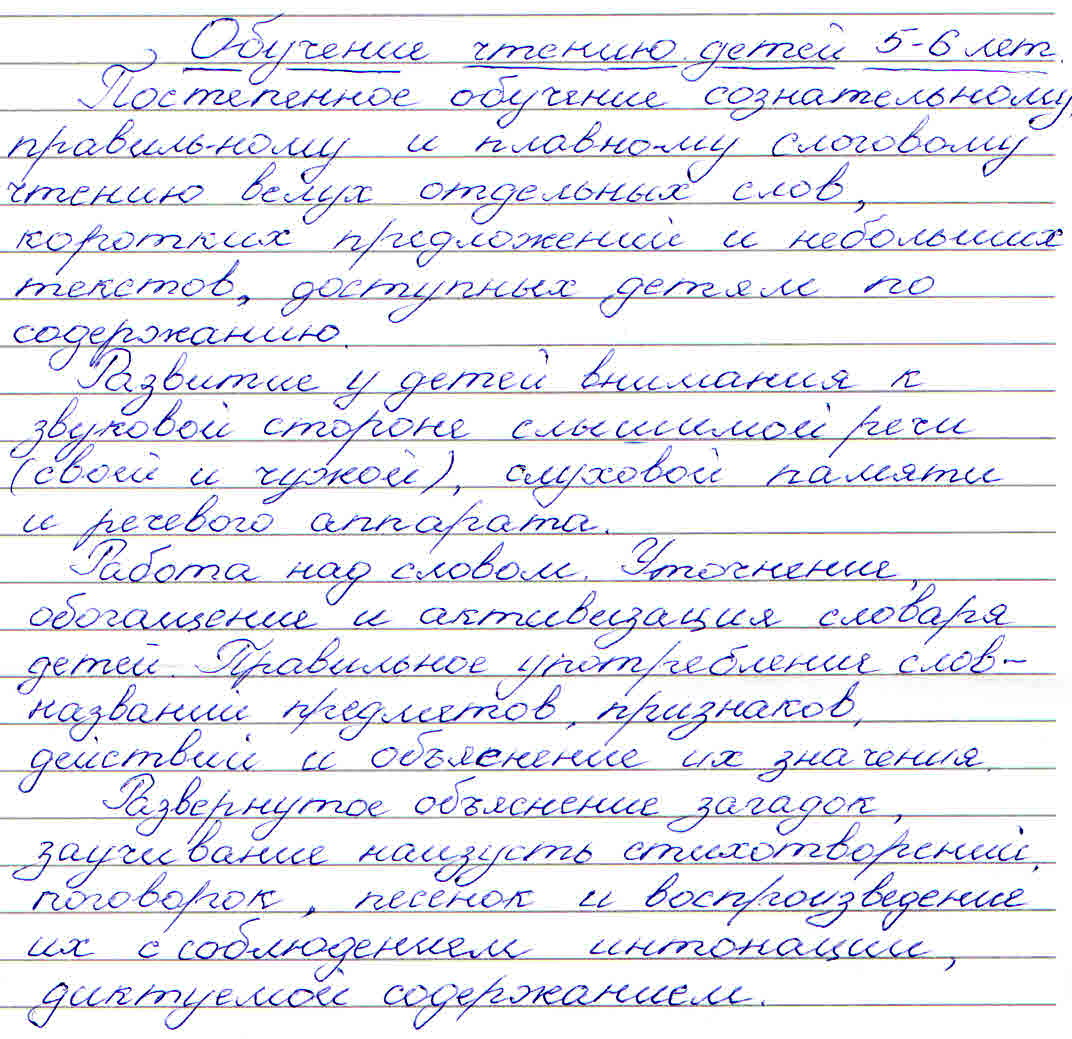 Обучение чтению детей 5-6 лет.
Постепенное обучение сознательному,
правильному и плавному слоговому
чтению вслух отдельных слов,
коротких предложений и небольших
текстов, доступных детям по
содержанию.
Развитие у детей внимания к
звуковой стороне слышимой речи
(своей и чужой), слуховой памяти
и речевого аппарата.
Работа над словом. Уточнение,
обогащение и активизация словаря
детей. Правильное употребление слов-
названий предметов, признаков,
действий и объяснение их значения.
Развернутое объяснение загадок,
заучивание наизусть стихотворений,
поговорок, песенок и воспроизведение
их с соблюдением интонации,
диктуемой содержанием.